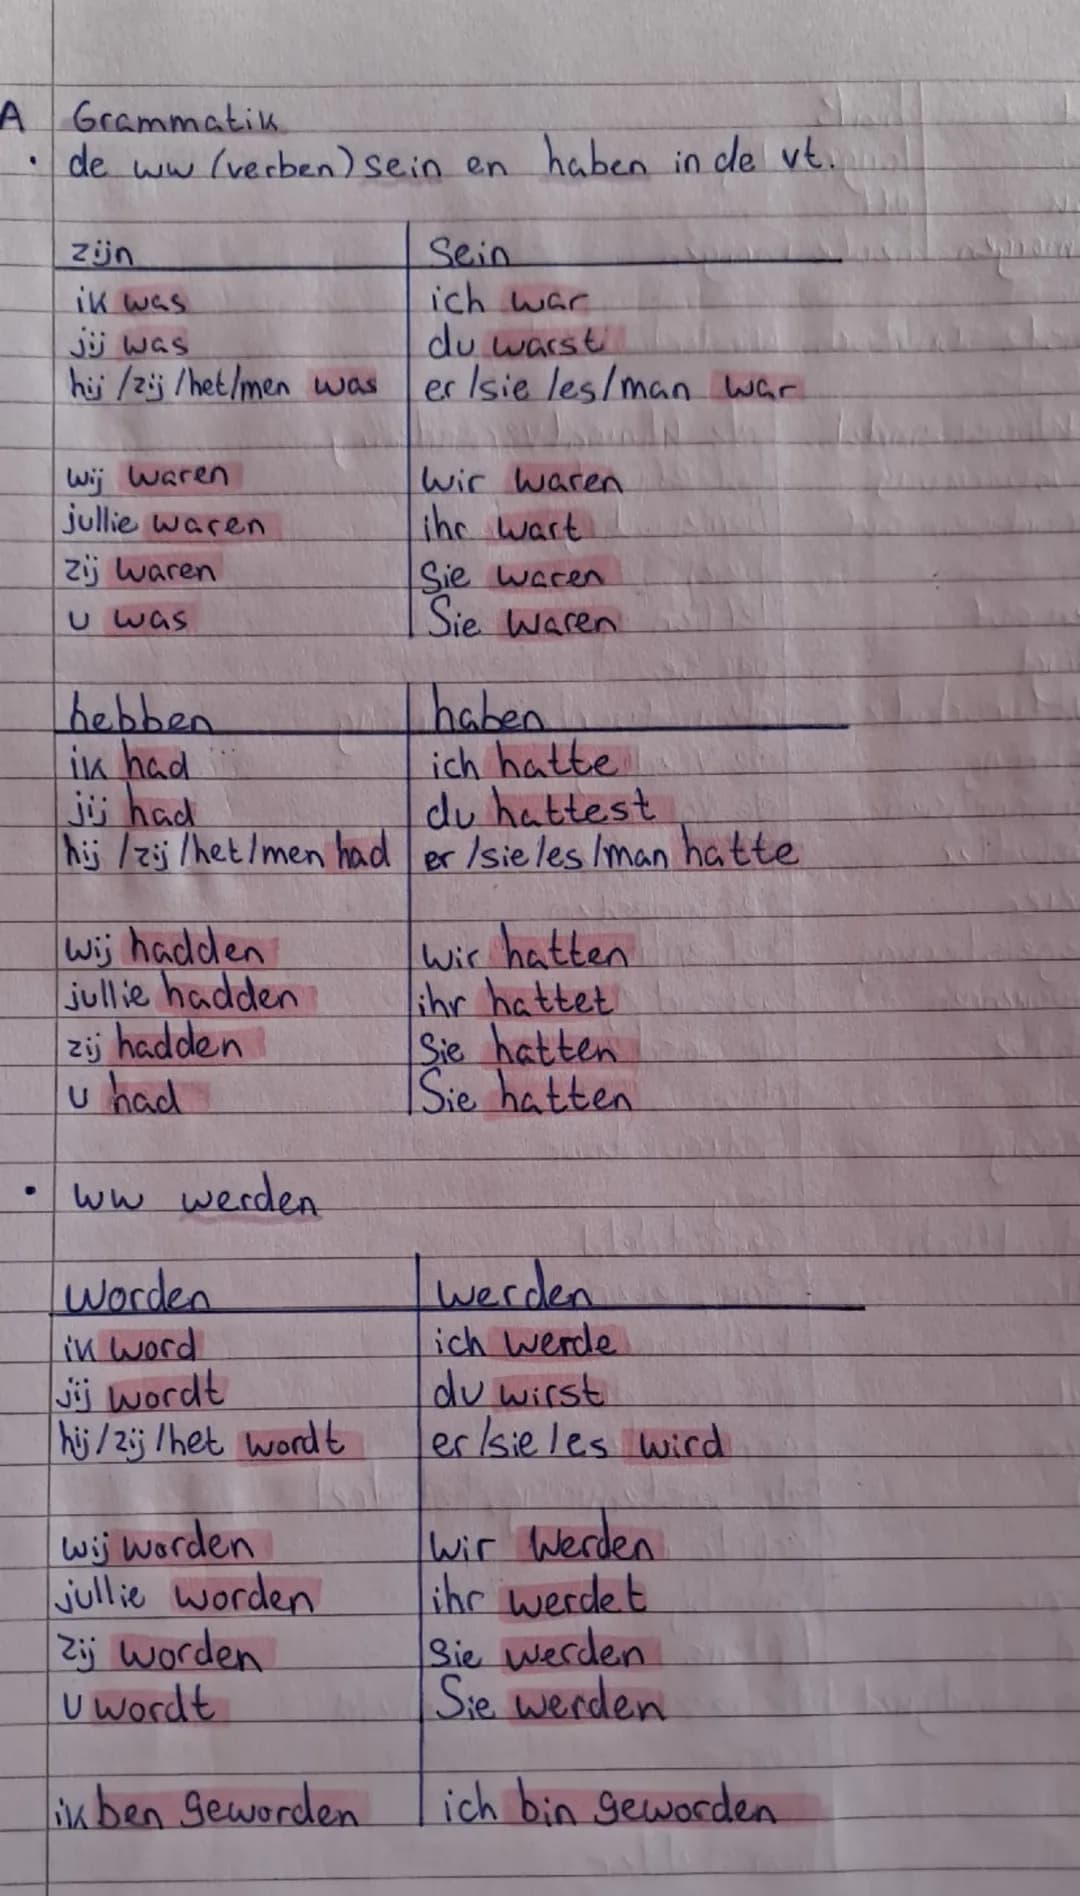 A Grammatik
• de ww (verben) sein en haben in de vt.
zijn | sein
ik was | ich war
jij was | du warst
hij /zij /het/men was | er /sie /es/man war
wij waren | wir waren
jullie waren | ihr wart
zij waren | sie waren
u was | Sie waren
hebben | haben
ik had | ich hatte
jij had | du hattest
hij /zij /het/men had | er /sie/es /man hatte
wij hadden | wir hatten
jullie hadden | ihr hattet
zij hadden | sie hatten
u had | Sie hatten
• ww werden
worden | werden
ik word | ich werde
jij wordt | du wirst
hij/zij/het wordt | er/sie/es wird
wij worden | wir werden
jullie worden | ihr werdet
zij worden | sie werden
u wordt | Sie werden
ik ben geworden | ich bin geworden